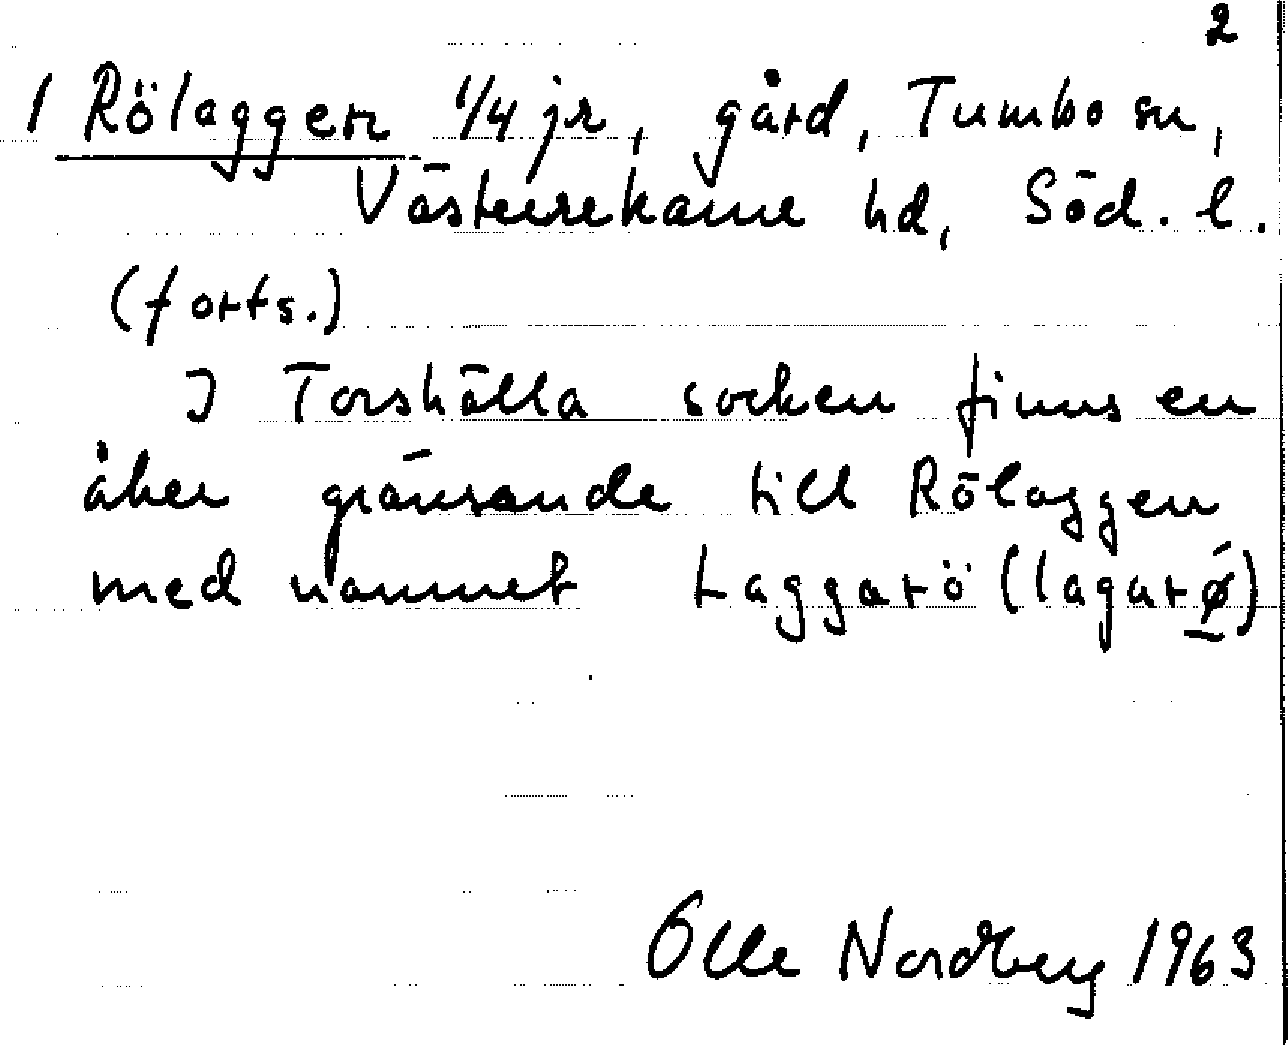 2
1 Rölaggen 1/4 jr, gård, Tumbo sn,
Västerrekarne hd, Söd. l.
(forts.)
I Torshälla socken finns en
åker gränsande till Rölaggen
med namnet Laggarö (lagarǿ)
Olle Nordberg 1963